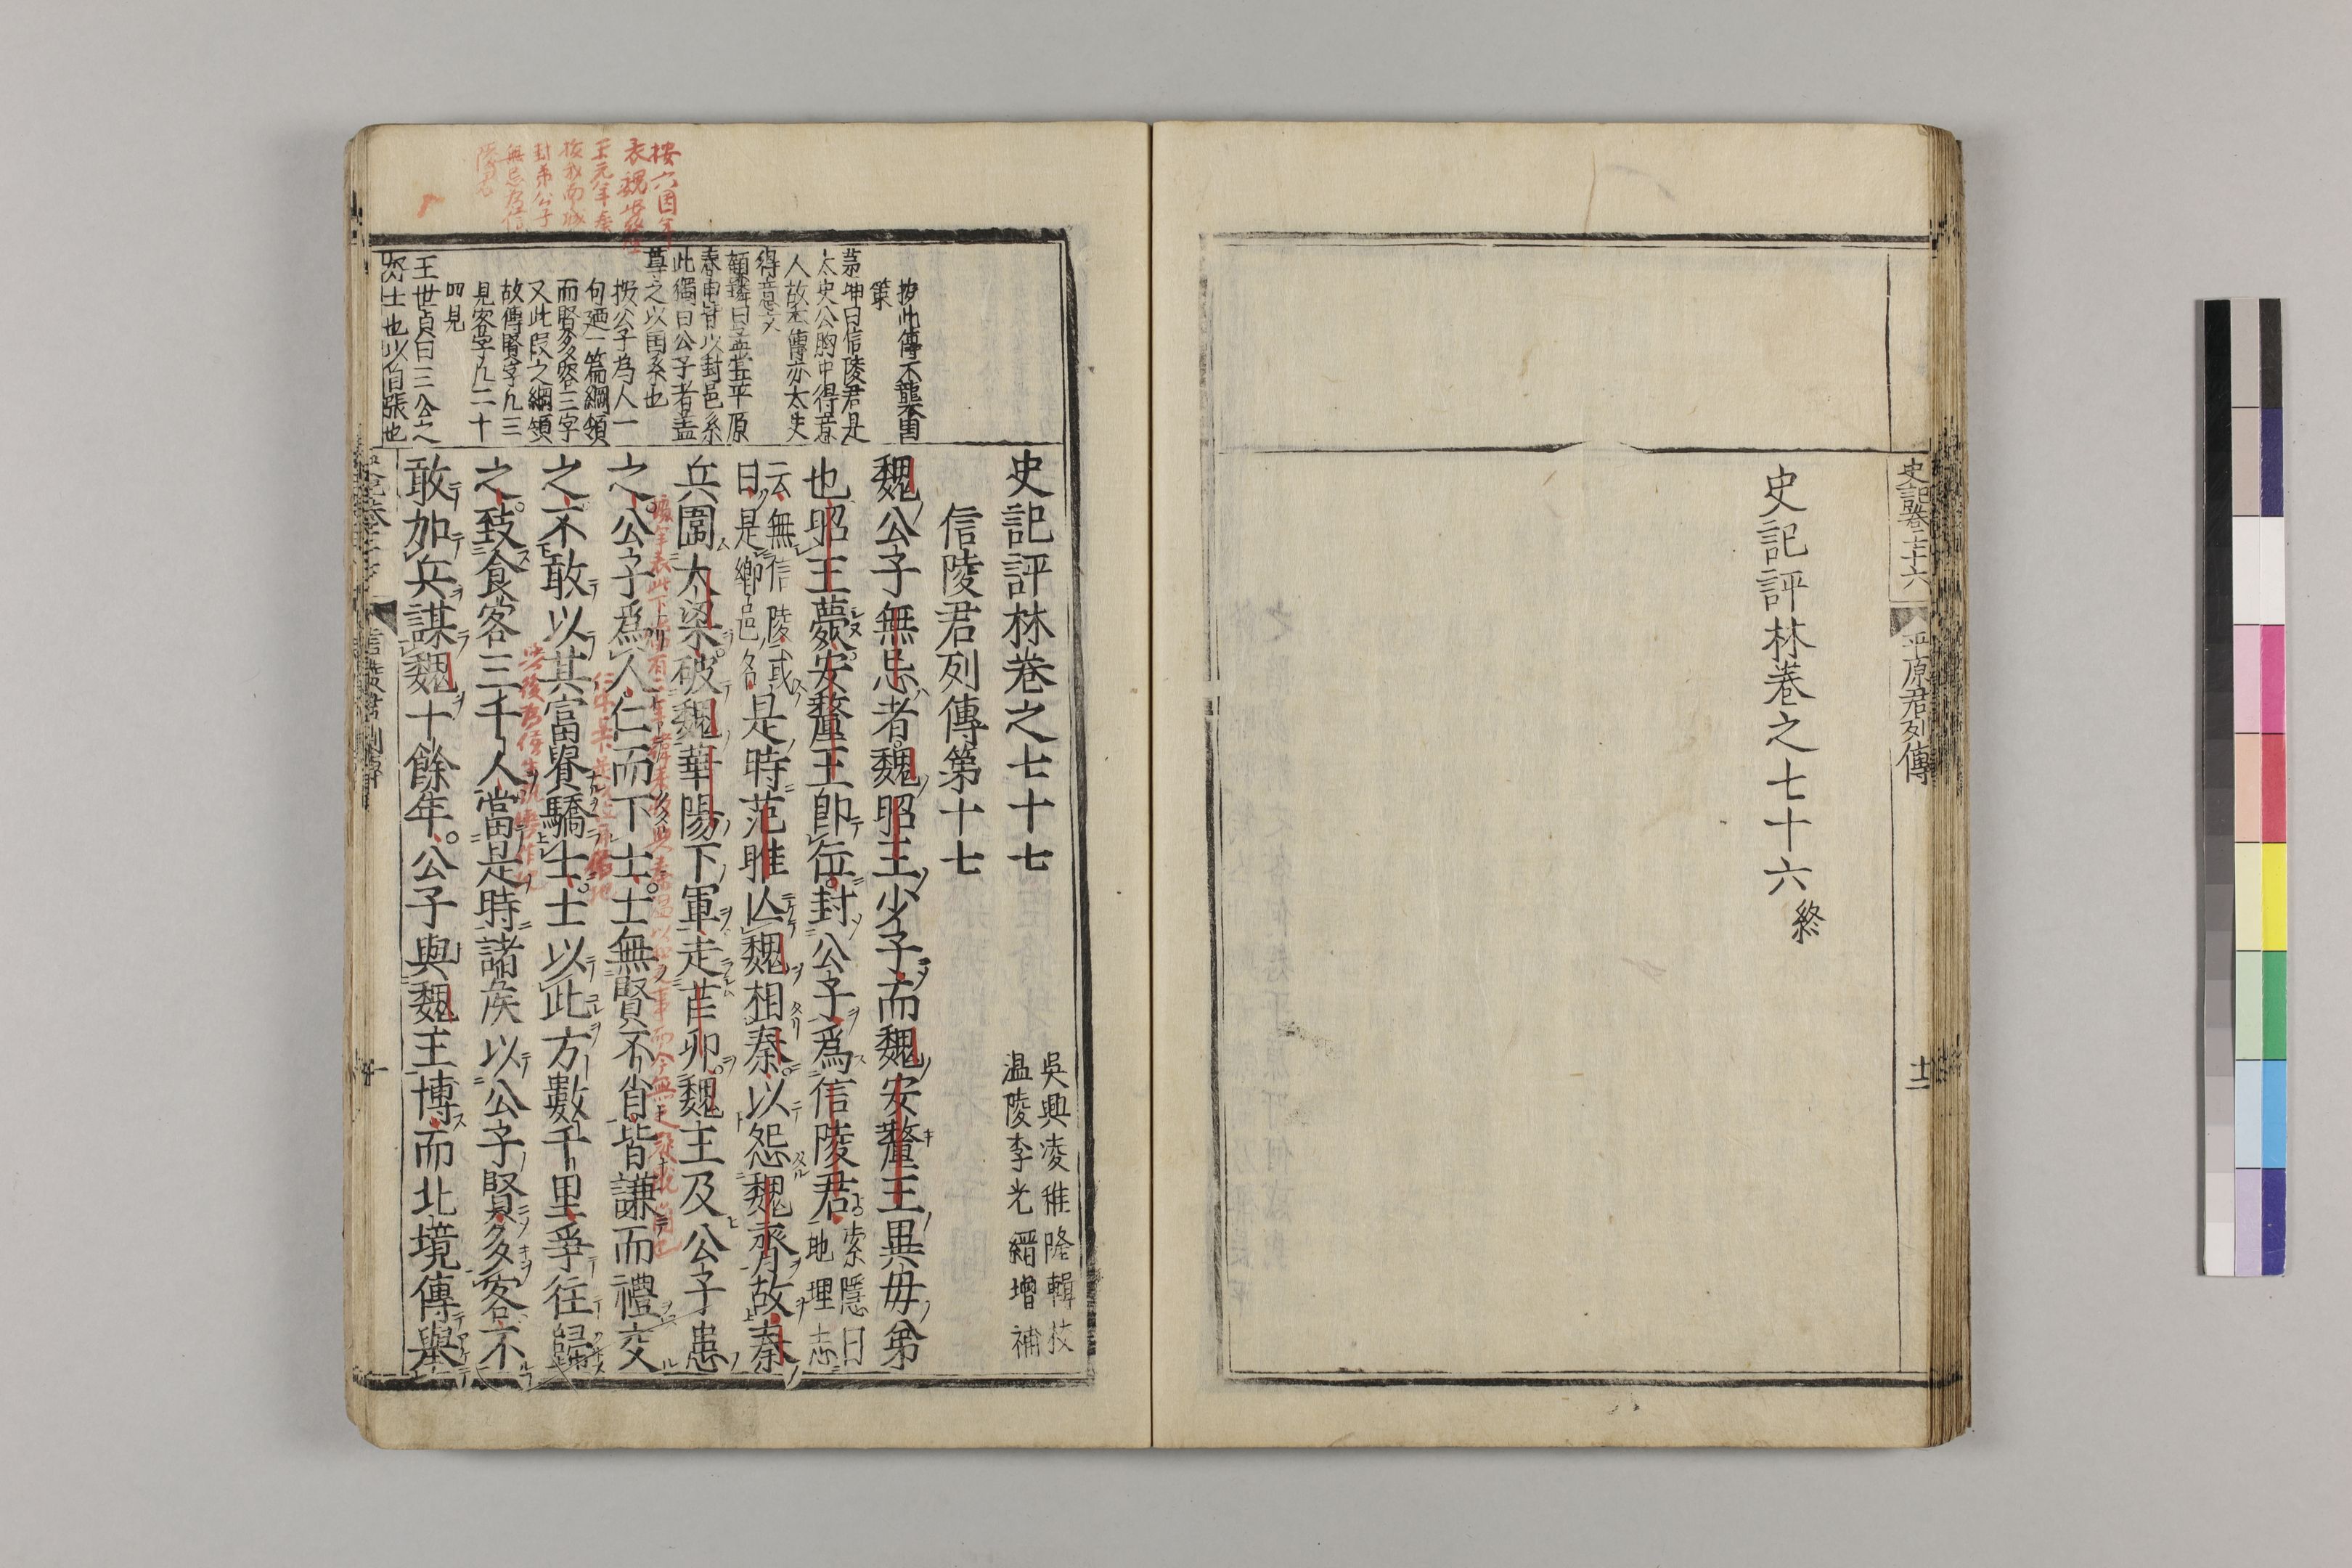 史記卷七十六
平原君列傳
十二
史記評林卷之七十六 終
按此傳不襲國
策
茅坤曰信陵君是
太史公胸中得意
人故本傳亦太史
得意文
顧璘曰孟嘗平原
春申皆以封邑系
此獨曰公子者盖
尊之以国系也
按公子為人一
句廼一篇綱領
而賢多客三字
又此段之綱領
故傳賢字凡三
見客字凡二十
四見
王世貞曰三公之
好士也以自張也
史記評林卷之七十七
吳興凌稚隆輯校
温陵李光縉增補
信陵君列傳第十七
魏公子無忌者魏昭王少子而魏安釐王異毋弟
也昭王薨安釐王即位封公子爲信陵君 索隱曰地理志
云無信陵或曰是鄉邑名 是時范睢亾魏相秦以怨魏齊故秦
兵圍大梁破魏華陽下軍走芒卯魏王及公子患
之公子爲人仁而下士士無賢不肖皆謙而禮交
之不敢以其富貴驕士士以此方數千里爭往歸
之致食客三千人當是時諸矦以公子賢多客不
敢加兵謀魏十餘年公子與魏王博而北境傳舉